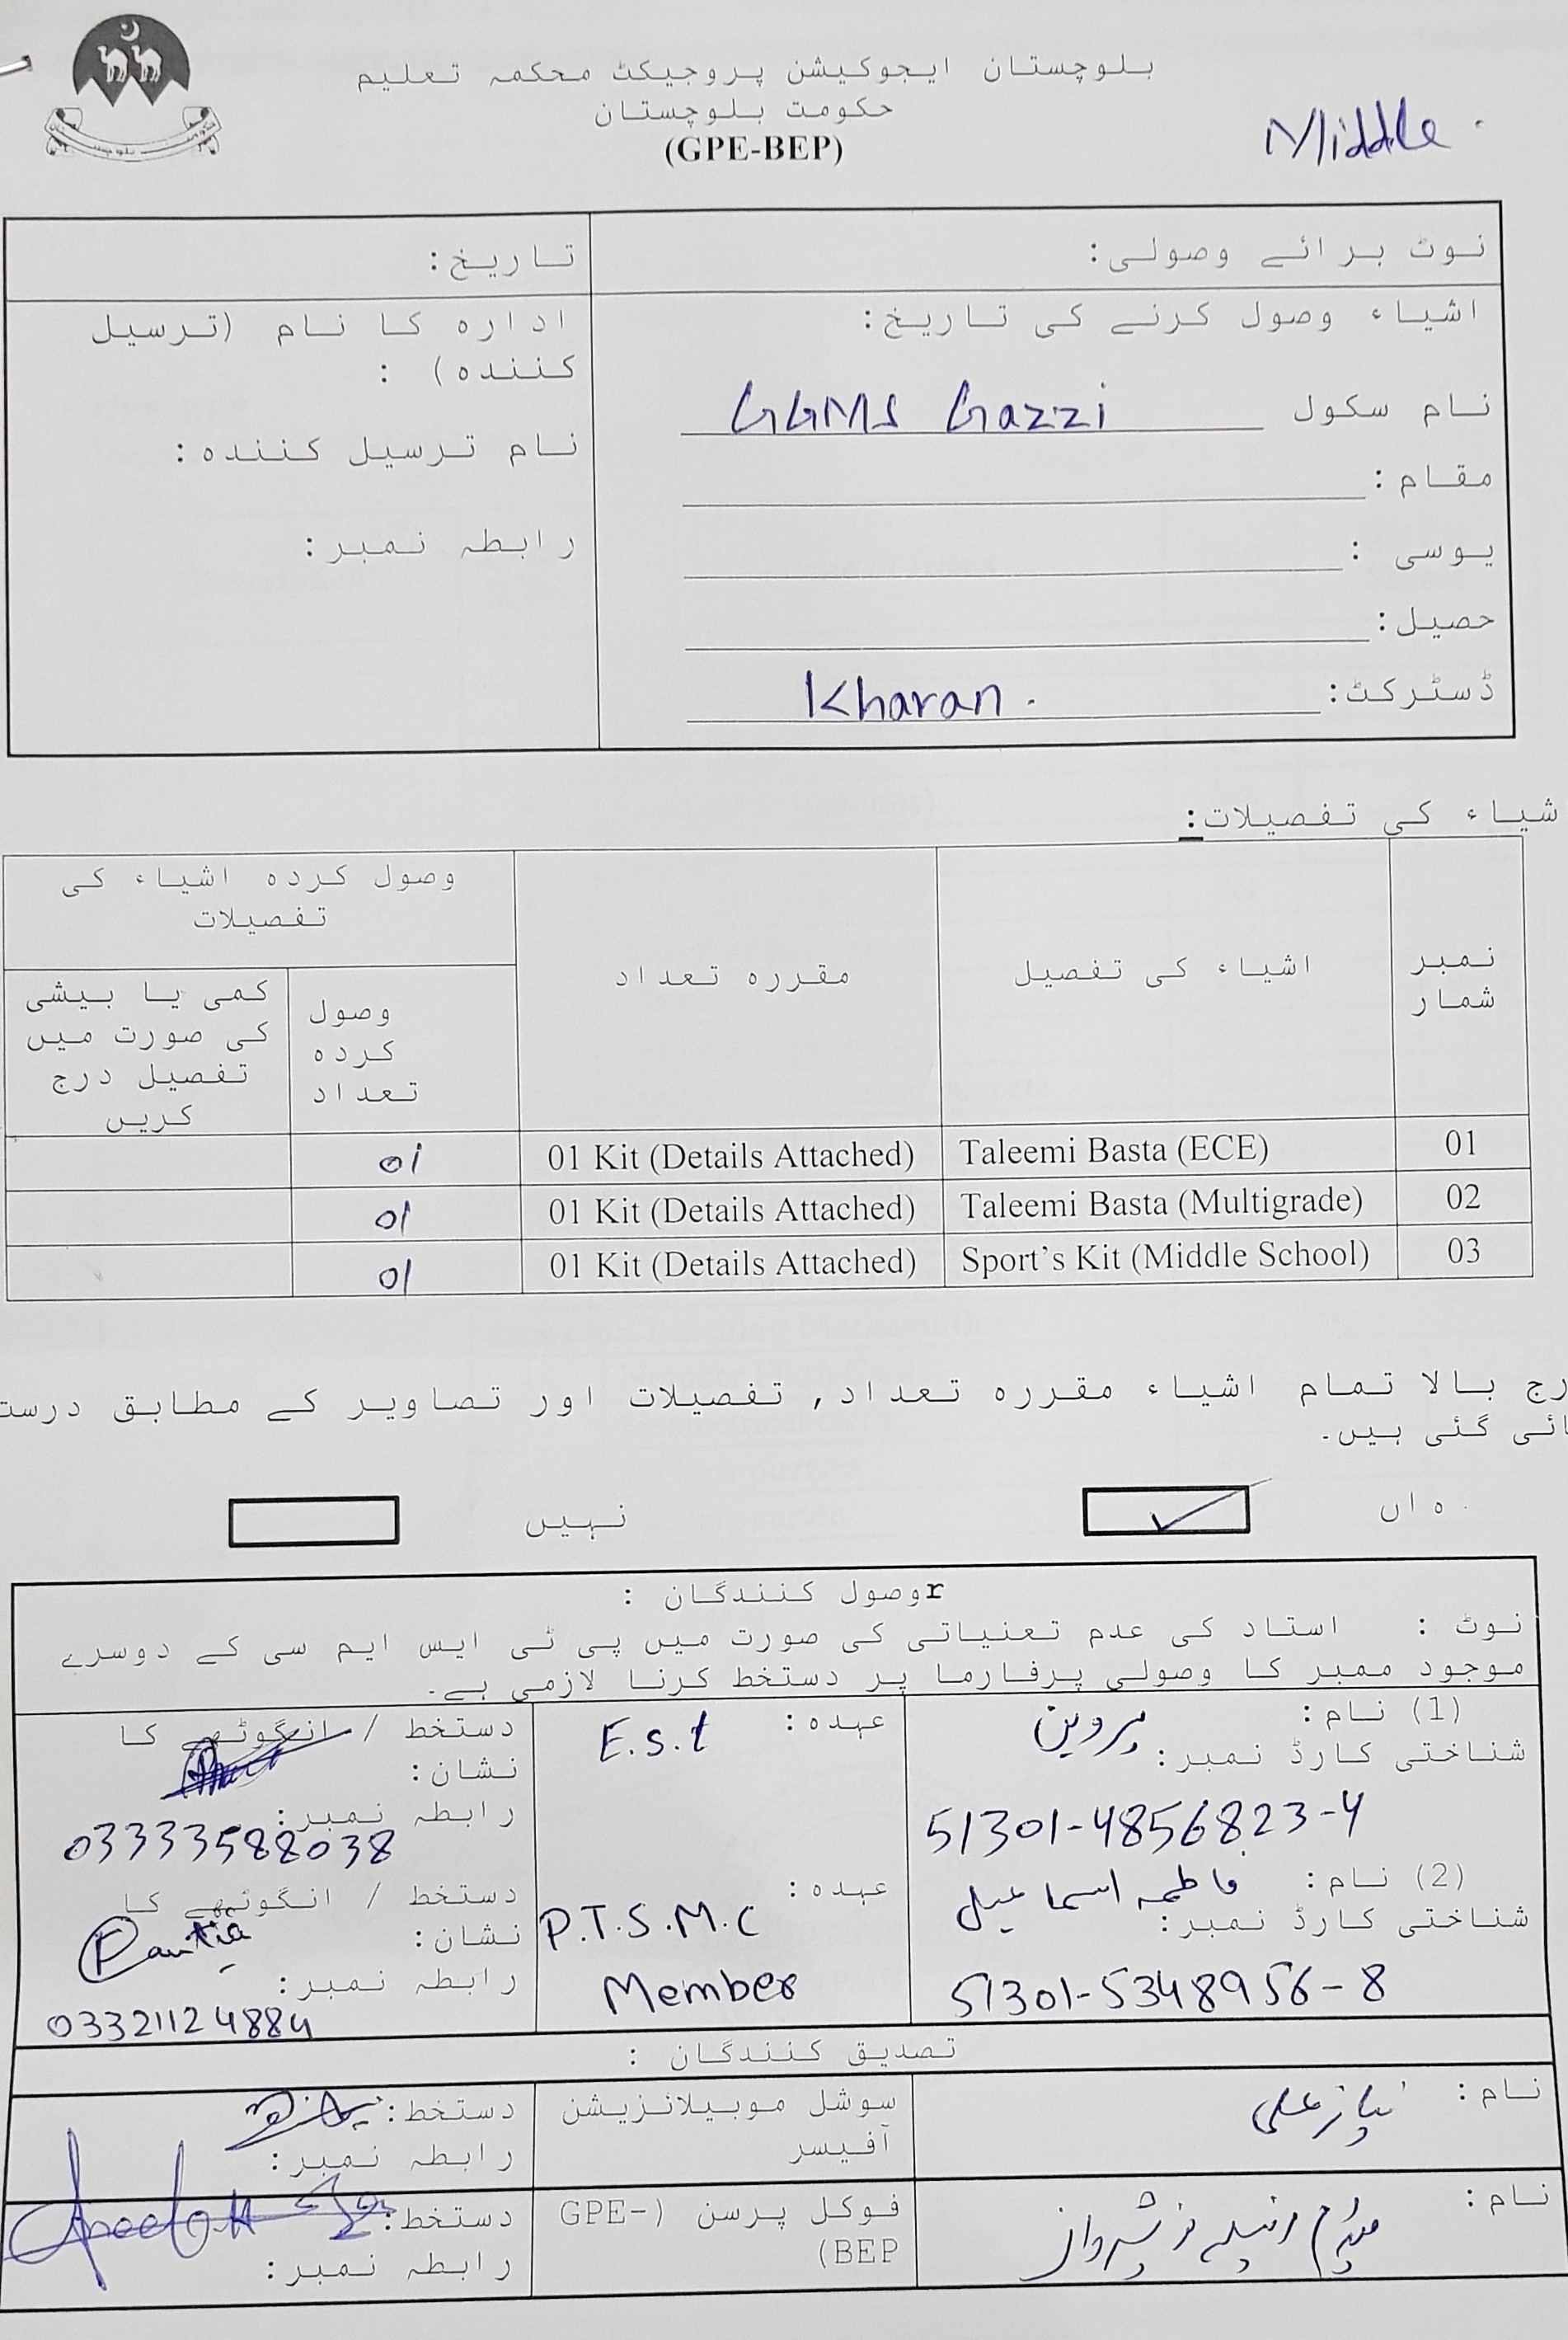 بلوچستان ایجوکیشن پروجیکٹ محکمہ تعلیم
حکومت بلوچستان
(GPE-BEP)
Middle.
نوٹ برائے وصولی:
تاریخ:
اشیاء وصول کرنے کی تاریخ:
نام سکول GGMS Gazzi
مقام:
یوسی :
حصیل:
ڈسٹرکٹ: Kharan.
ادارہ کا نام (ترسیل
کنندہ) :
نام ترسیل کنندہ:
رابطہ نمبر:
شیاء کی تفصیلات:
نمبر شمار
اشیاء کی تفصیل
مقررہ تعداد
وصول کردہ اشیاء کی
تفصیلات
وصول
کردہ
تعداد
کمی یا بیشی
کی صورت میں
تفصیل درج
کریں
01 Taleemi Basta (ECE) 01 Kit (Details Attached) 01
02 Taleemi Basta (Multigrade) 01 Kit (Details Attached) 01
03 Sport’s Kit (Middle School) 01 Kit (Details Attached) 01
رج بالا تمام اشیاء مقررہ تعداد, تفصیلات اور تصاویر کے مطابق درست
ائی گئی ہیں۔
ہاں ✓ نہیں
rوصول کنندگان :
نوٹ : استاد کی عدم تعنیاتی کی صورت میں پی ٹی ایس ایم سی کے دوسرے
موجود ممبر کا وصولی پرفارما پر دستخط کرنا لازمی ہے۔
(1) نام: پروین
شناختی کارڈ نمبر:
51301-4856823-4
عہدہ: E.s.t
دستخط / انگوٹھے کا
نشان:
رابطہ نمبر:
03333588038
(2) نام: فاطمہ اسماعیل
شناختی کارڈ نمبر:
51301-5348956-8
عہدہ:
P.T.S.M.C
Member
دستخط / انگوٹھے کا
نشان:
رابطہ نمبر:
03321124884
تصدیق کنندگان :
نام: نیاز علی
سوشل موبیلائزیشن
آفیسر
دستخط:
رابطہ نمبر:
نام: میڈم
فوکل پرسن (GPE-
BEP)
دستخط:
رابطہ نمبر: